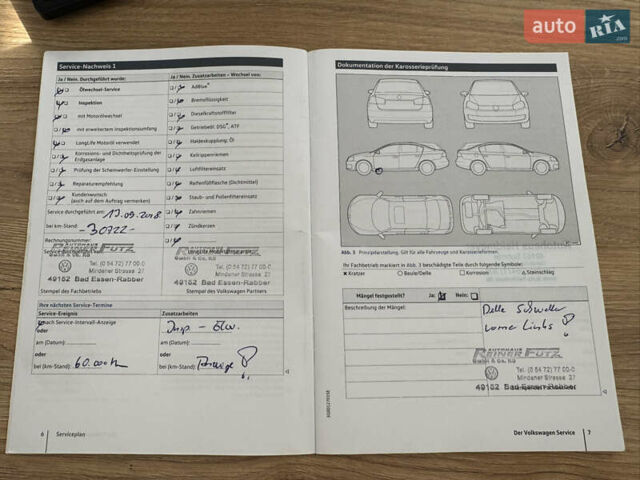 auto RIA.com
Service-Nachweis 1
Ja / Nein. Durchgeführt wurde:
Ölwechsel-Service
Inspektion
mit Motorölwechsel
mit erweitertem Inspektionsumfang
LongLife Motoröl verwendet
Korrosions- und Dichtheitsprüfung der Erdgasanlage
Prüfung der Scheinwerfer-Einstellung
Reparaturempfehlung
Kundenwunsch
(auch auf dem Auftrag vermerken)
Service durchgeführt am: 13.09.2018
bei km-Stand: -30722-
Rechnungsnummer:
AUTOHAUS
REINER FUTZ
GmbH & Co. KG
Tel. (0 54 72) 77 77-00
Mindener Strasse 27
49152 Bad Essen-Rabber
Stempel des Fachbetriebs
Ja / Nein. Zusatzarbeiten – Wechsel von:
AdBlue®
Bremsflüssigkeit
Dieselkraftstofffilter
Getriebeöl: DSG®, ATF
Haldexkupplung: Öl
Keilrippenriemen
Luftfiltereinsatz
Reifenfüllflasche (Dichtmittel)
Staub- und Pollenfiltereinsatz
Zahnriemen
Zündkerzen
REINER FUTZ
GmbH & Co. KG
Tel. (0 54 72) 77 77-00
Mindener Strasse 27
49152 Bad Essen-Rabber
Stempel des Volkswagen Partners
Ihre nächsten Service-Termine
Service-Ereignis
Zusatzarbeiten
nach Service-Intervall-Anzeige
oder
am (Datum):
oder
bei (km-Stand): 60.000 km
Insp. – Ölw.
am (Datum):
oder
bei (km-Stand):
6 Serviceplan
Dokumentation der Karosserieprüfung
Abb. 3 Prinzipdarstellung. Gilt für alle Fahrzeuge und Karosserieformen.
Ihr Fachbetrieb markiert in Abb. 3 beschädigte Teile durch folgende Symbole:
Kratzer
Beule/Delle
Korrosion
Steinschlag
Mängel festgestellt? Ja: Nein:
Beschreibung der Mängel:
Delle Schweller
vorne links
REINER FUTZ
GmbH & Co. KG
Tel. (0 54 72) 77 77-00
Mindener Strasse 27
49152 Bad Essen-Rabber
Der Volkswagen Service 7